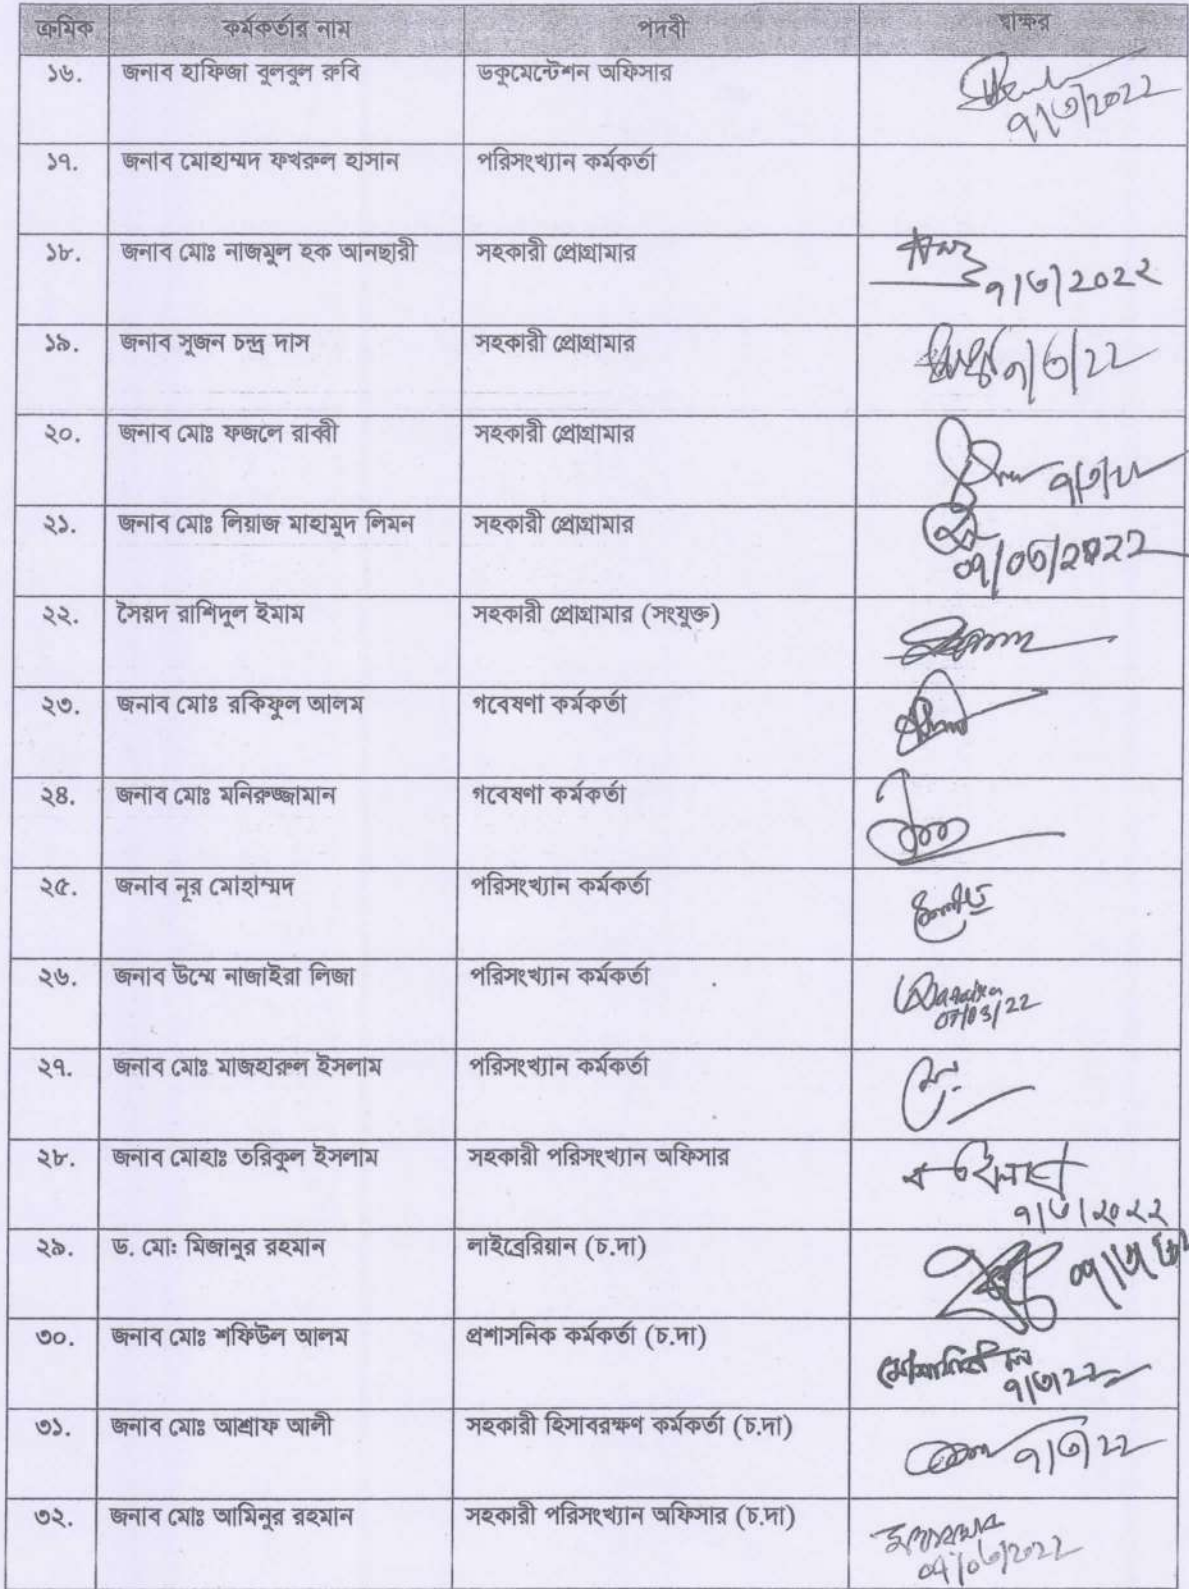 ক্রমিক কর্মকর্তার নাম পদবী স্বাক্ষর
১৬. জনাব হাফিজা বুলবুল রুবি ডকুমেন্টেশন অফিসার
৭/৩/2022
১৭. জনাব মোহাম্মদ ফখরুল হাসান পরিসংখ্যান কর্মকর্তা
১৮. জনাব মোঃ নাজমুল হক আনছারী সহকারী প্রোগ্রামার
৭/৩/2022
১৯. জনাব সুজন চন্দ্র দাস সহকারী প্রোগ্রামার ৭/৩/22
২০. জনাব মোঃ ফজলে রাব্বী সহকারী প্রোগ্রামার
২১. জনাব মোঃ লিয়াজ মাহামুদ লিমন সহকারী প্রোগ্রামার
০৭/০৩/2022
২২. সৈয়দ রাশিদুল ইমাম সহকারী প্রোগ্রামার (সংযুক্ত)
২৩. জনাব মোঃ রকিফুল আলম গবেষণা কর্মকর্তা
২৪. জনাব মোঃ মনিরুজ্জামান গবেষণা কর্মকর্তা
২৫. জনাব নূর মোহাম্মদ পরিসংখ্যান কর্মকর্তা
২৬. জনাব উম্মে নাজাইরা লিজা পরিসংখ্যান কর্মকর্তা
07/03/22
২৭. জনাব মোঃ মাজহারুল ইসলাম পরিসংখ্যান কর্মকর্তা
২৮. জনাব মোহাঃ তরিকুল ইসলাম সহকারী পরিসংখ্যান অফিসার
৭/৩/২০২২
২৯. ড. মো: মিজানুর রহমান লাইব্রেরিয়ান (চ.দা)
৩০. জনাব মোঃ শফিউল আলম প্রশাসনিক কর্মকর্তা (চ.দা)
৭/৩/22
৩১. জনাব মোঃ আশ্রাফ আলী সহকারী হিসাবরক্ষণ কর্মকর্তা (চ.দা)
৭/৩/22
৩২. জনাব মোঃ আমিনুর রহমান সহকারী পরিসংখ্যান অফিসার (চ.দা)
০৭/০৩/2022